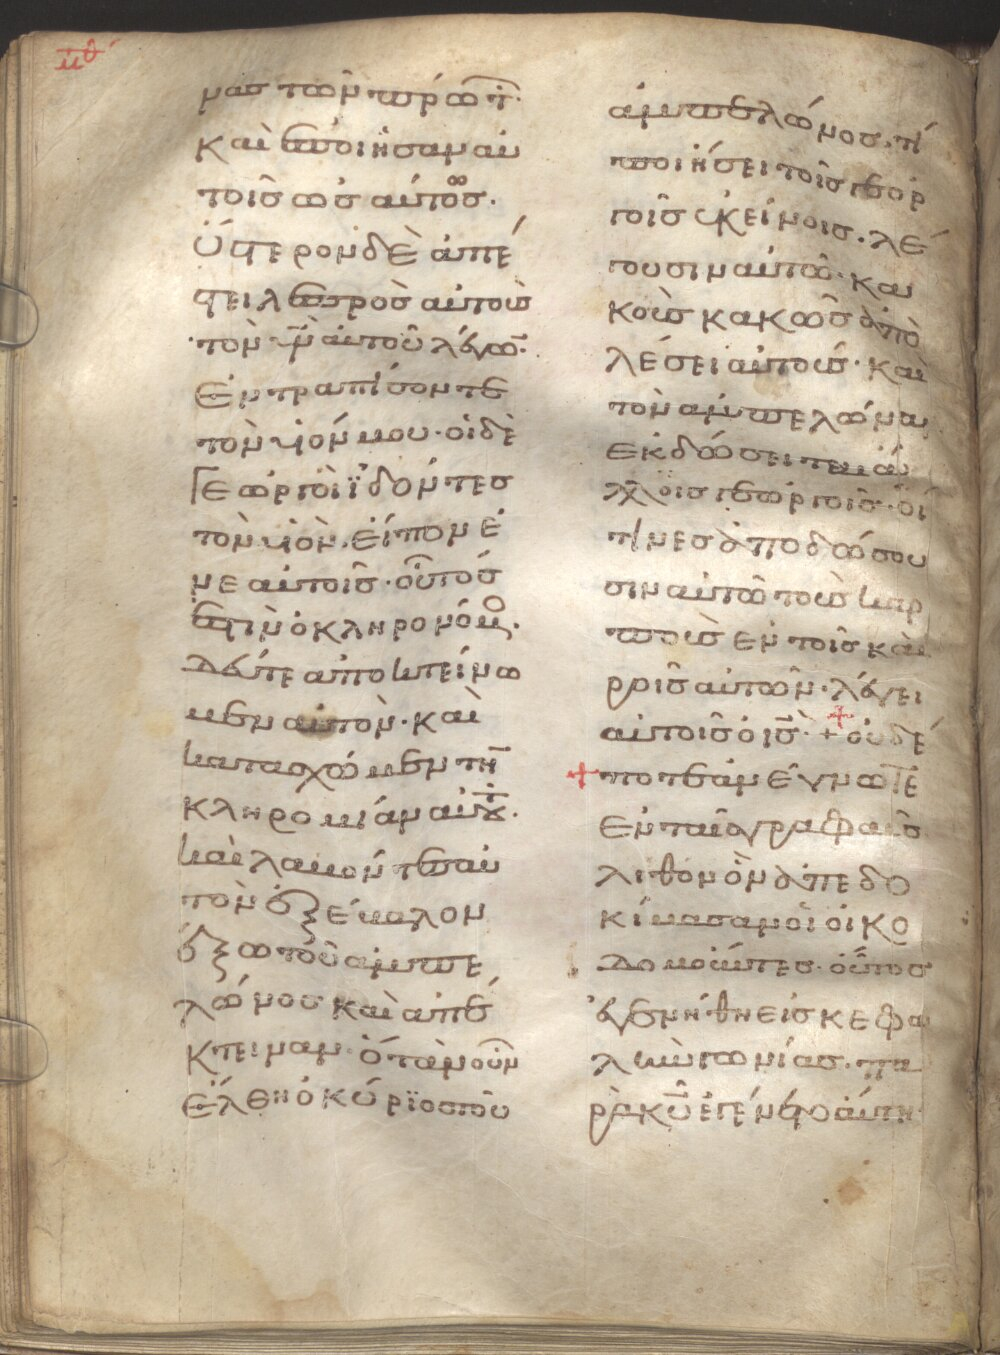 μθ
νας τῶν πρώτ̅
καὶ ἐποίησαν αὐ
τοῖς ὡσαύτως.
Ὕστερον δὲ ἀπέ
στειλε πρὸς αὐτοὺς
τὸν υ̅ν̅ αὐτοῦ λέγω̅.
Ἐντραπίσονται
τὸν υἱόν μου. οἱ δὲ
Γεωργοὶ ἰδόντες
τὸν υἱὸν. εἶπον ἐ
νε αυτοῖς. οὗτός
ἐστιν ὁ κληρονόμος.
Δεῦτε ἀποκτείνω
μεν αὐτὸν. καὶ
κατασχῶμεν τὴ̅
κληρομίαν αὐτοῦ.
καὶ λαβόντες αὐ
τὸν ἐξέβαλον
ἔξω τοῦ ἀμπε
λῶνος καὶ ἀπέ
κτειναν. ὅταν οὖν
ἔλθη ὁ κύριος τοῦ
ἀμπελῶνος. τί
ποιήσει τοῖς γεωρ
γοῖς ἐκείνοις. λέ
γουσιν αὐτῶ. κα
κοὺς κακῶς ἀπο
λέσει αὐτούς. καὶ
τὸν ἀμπελῶνα
ἐκδώσεται ἄλ
λοις γεωργοῖς. οἵ
τινες ἀποδώσου
σιν αὐτῶ τοὺς καρ
ποὺς ἐν τοῖς και
ροῖς αὐτῶν. λέγει
αὐτοῖς ὁ ι̅ς̅. + οὐδέ
+ ποτε ἀνέγνωτε
ἐν ταῖς γραφαῖς
λίθον ὃν ἀπεδο
κίμασαν οἱ οἰκο
Δομοῦντες. οὗτος
ἐγενήθη εἰς κεφα
λὴν γωνίας. πα
ρὰ κ̅υ̅ ἐγένετο αὕτη